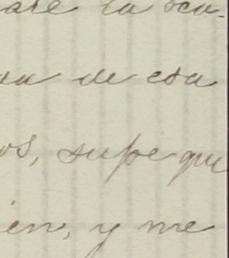 la oca-
de esa
os, supe que
ien, y me